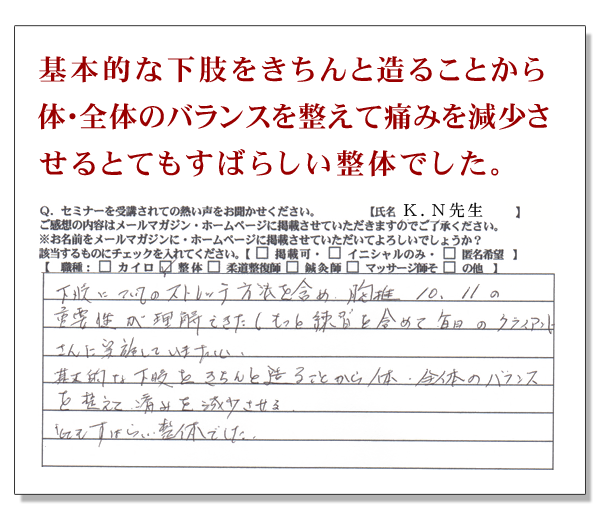 基本的な下肢をきちんと造ることから
体・全体のバランスを整えて痛みを減少さ
せるとてもすばらしい整体でした。
Q．セミナーを受講されての熱い声をお聞かせください。 【氏名 K．N先生 】
ご感想の内容はメールマガジン・ホームページに掲載させていただきますのでご了承ください。
※お名前をメールマガジンに・ホームページに掲載させていただいてよろしいでしょうか？
該当するものにチェックを入れてください。【 □ 掲載可・ □ イニシャルのみ・ □ 匿名希望 】
【 職種： □ カイロ ☑ 整体 □ 柔道整復師 □ 鍼灸師 □ マッサージ師そ □ の他 】
下肢についてのストレッチ方法を含め 胸椎 10、11の
重要性が理解できたしもっと練習を含めて毎日のクライアント
さんに実施していきたい、
基本的な下肢をきちんと造ることから体・全体のバランス
を整えて痛みを減少させる
とてもすばらしい整体でした。